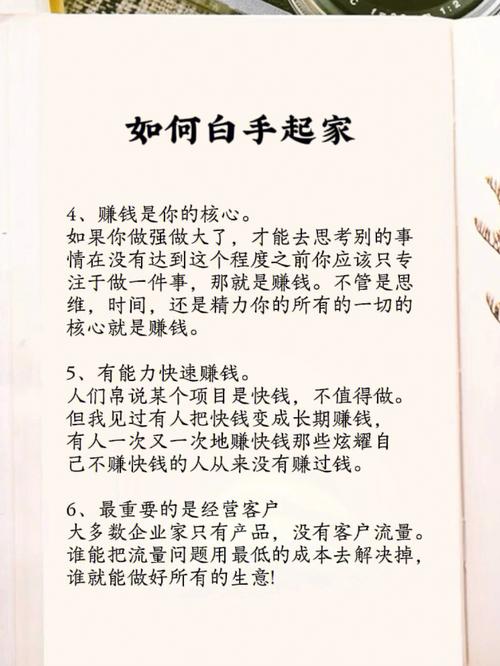 如何白手起家
4、赚钱是你的核心。
如果你做强做大了，才能去思考别的事
情在没有达到这个程度之前你应该只专
注于做一件事，那就是赚钱。不管是思
维，时间，还是精力你的所有的一切的
核心就是赚钱。
5、有能力快速赚钱。
人们帛说某个项目是快钱，不值得做。
但我见过有人把快钱变成长期赚钱，
有人一次又一次地赚快钱那些炫耀自
己不赚快钱的人从来没有赚过钱。
6、最重要的是经营客户
大多数企业家只有产品，没有客户流量。
谁能把流量问题用最低的成本去解决掉，
谁就能做好所有的生意!